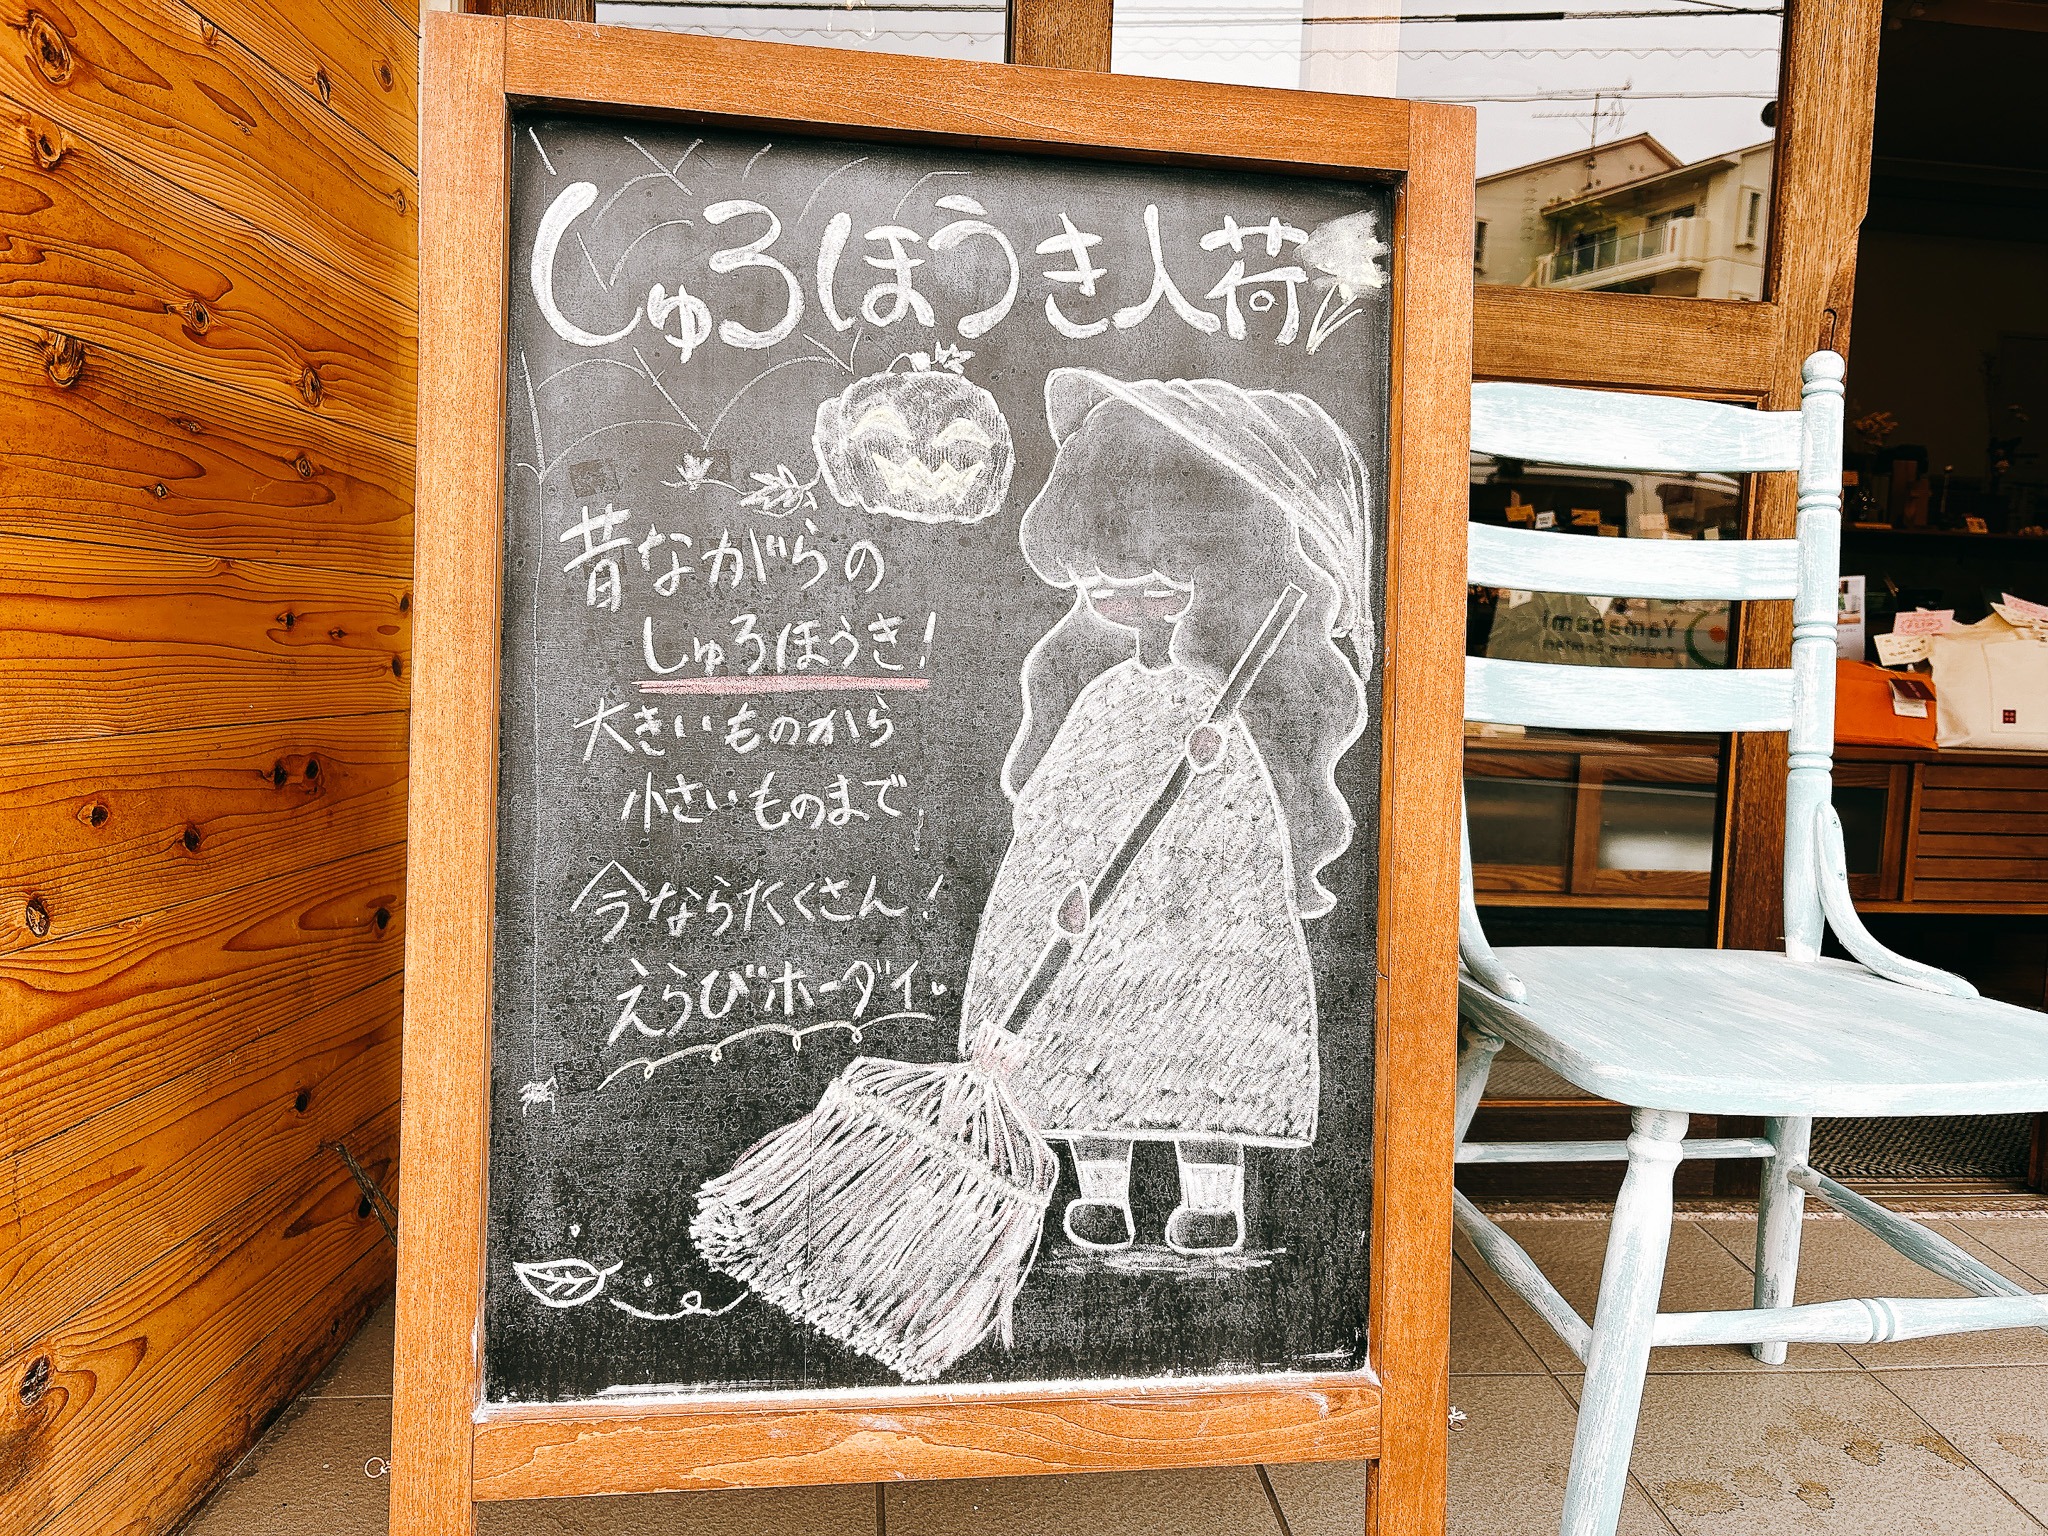 しゅろほうき入荷
昔ながらの
しゅろほうき!
大きいものから
小さいものまで!
今ならたくさん!
えらびホーダイ♥
Yamagami